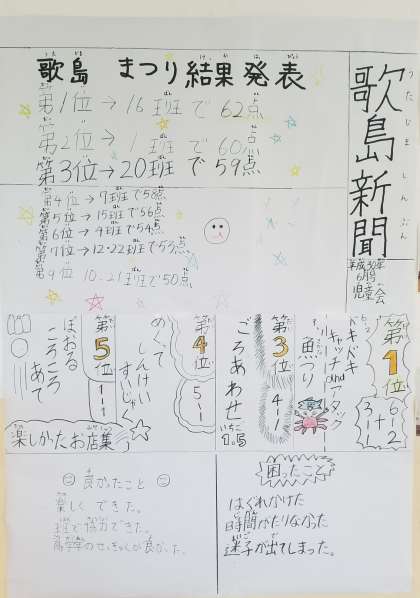 歌島新聞
うたじましんぶん
平成30年
6月号
児童会
歌島 まつり結果発表
第1位→16班で62点
第2位→1班で60点
第3位→20班で59点
第4位→7班で58点
第5位→15班で56点
第6位→4班で54点
第7位→12・22班で53点
第9位 10.21班で50点
第1位
6-2
+
3-1
ドキドキ
キャッチandアタック
魚つり
第3位
4-1
ごろあわせ
いちご
1.5
第4位
5-1
めくって
しんけい
すいじゃく
第5位
1-1
あて
ころころ
ぼおる
楽しかったお店集
困ったこと
はぐれかけた
時間がたりなかった
迷子が出てしまった。
良かったこと
楽しくできた。
班で協力できた。
高学年のせっきゃくが良かった。